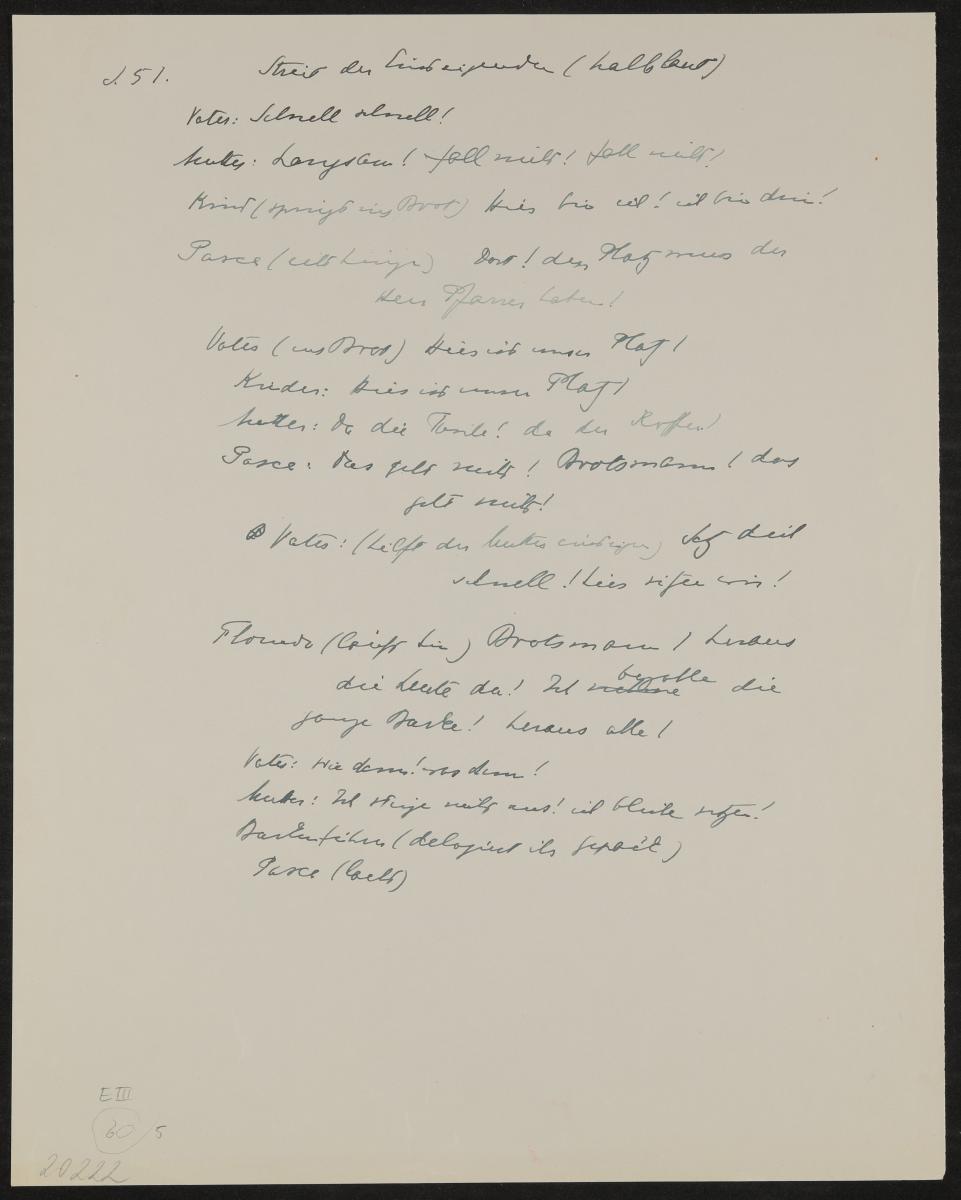 S. 51. Streit der Einsteigenden (halblaut)
Vater: Schnell schnell!
Mutter: Langsam! fall nicht! fall nicht!
Kind (springt ins Boot) Hier bin ich! ich bin drin!
Pasca (will hinein) Dort! den Platz muss der
Herr Pfarrer haben!
Vater (ins Boot) Hier ist unser Platz!
Kinder: Hier ist unser Platz!
Mutter: Da die Tasche! da der Koffer!
Pasca: Das geht nicht! Bootsmann! das
geht nicht!
Vater: (hilft der Mutter einsteigen) Setz dich
schnell! hier sitzen wir!
Florindo (läuft hin) Bootsmann! heraus
die Leute da! Ich bezahle die
ganze Barke! heraus alle!
Vater: Wie denn! was denn!
Mutter: Ich steige nicht aus! ich bleibe sitzen!
Barkenführer (delogiert ihr Gepäck)
Pasca (lacht)
E III
60 / 5
20222